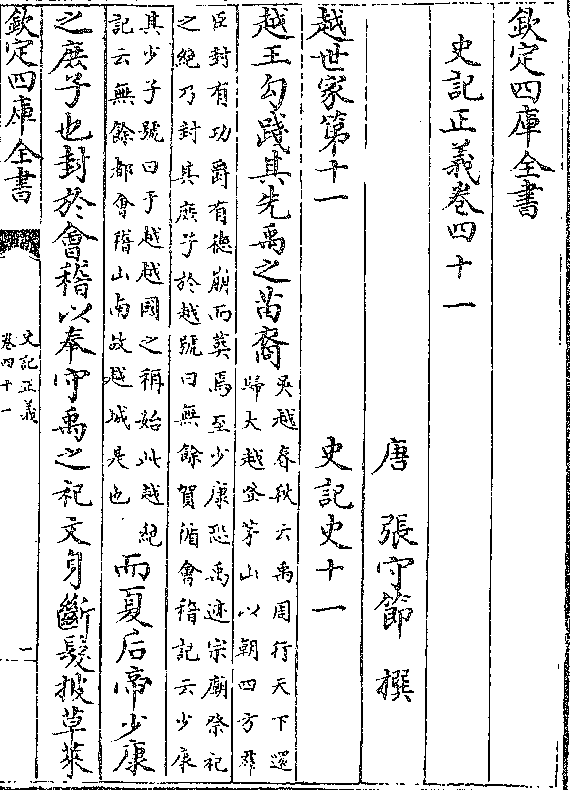 欽定四庫全書
史記正義卷四十一
唐 張守節 撰
越世家第十一 史記史十一
越王勾踐其先禹之苗裔
吳越春秋云禹周行天下還
歸大越登茅山以朝四方羣
臣封有功爵有德崩而葬焉至少康恐禹迹宗廟祭祀
之絶乃封其庶子於越號曰無餘賀循會稽記云少康
其少子號曰于越越國之稱始此越絶
記云無餘都會稽山南故越城是也
而夏后帝少康
之庶子也封於會稽以奉守禹之祀文身斷髮披草萊
欽定四庫全書
史記正義
卷四十一
一